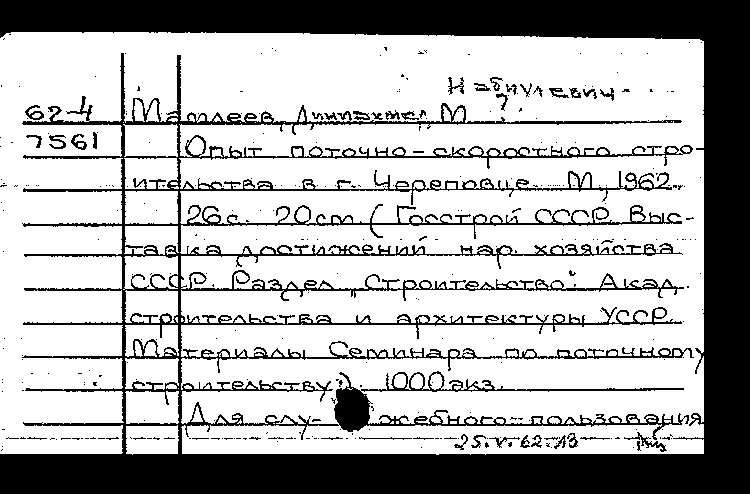 62-4 Матлеев, М
7561 Опыт поточно-скоростного стро-
ительства в г. Череповце. М., 1962.
26 с. 20 см. (Госстрой СССР. Выс-
тавка достижений нар. хозяйства
СССР. Раздел "Строительство". Акад.
строительства и архитектуры УССР.
Материалы Семинара по поточному
строительству). 1000 экз.
Для слу- жебного пользования
25.V.62.13